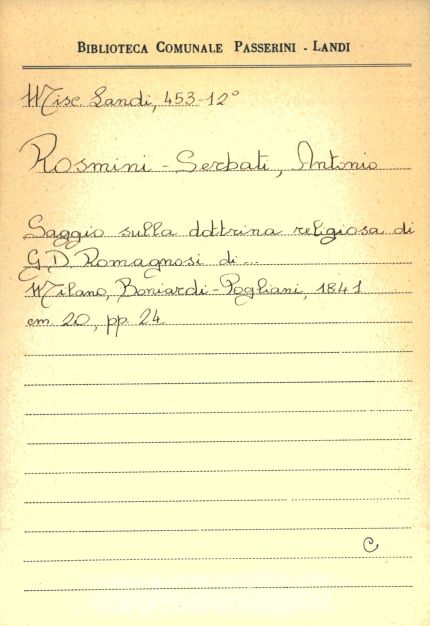 BIBLIOTECA COMUNALE PASSERINI - LANDI
Misc. Landi, 453-12°
Rosmini - Serbati, Antonio
Saggio sulla dottrina religiosa di
G.D. Romagnosi di...
Milano, Boniardi-Pogliani, 1841
cm. 20, pp. 24
C